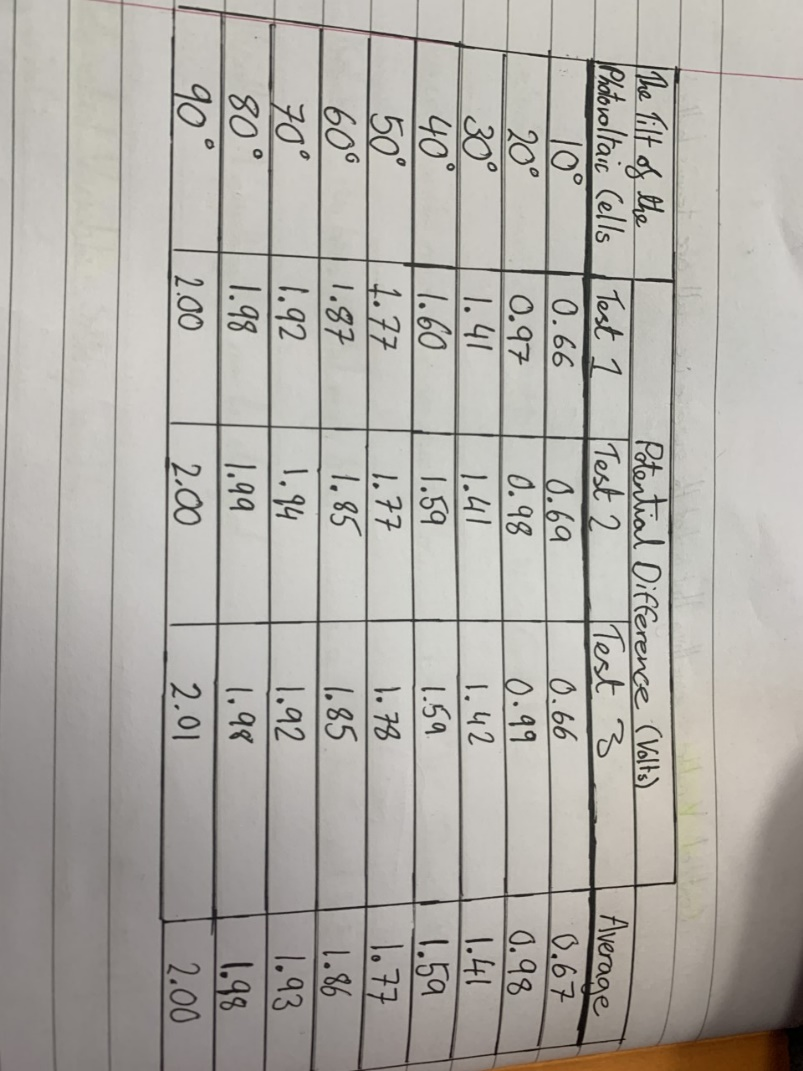 The Tilt of the Photovoltaic Cells Potential Difference (Volts)
Test 1 Test 2 Test 3 Average
10° 0.66 0.69 0.66 0.67
20° 0.97 0.98 0.99 0.98
30° 1.41 1.41 1.42 1.41
40° 1.60 1.59 1.59 1.59
50° 1.77 1.77 1.78 1.77
60° 1.87 1.85 1.85 1.86
70° 1.92 1.94 1.92 1.93
80° 1.98 1.99 1.98 1.98
90° 2.00 2.00 2.01 2.00